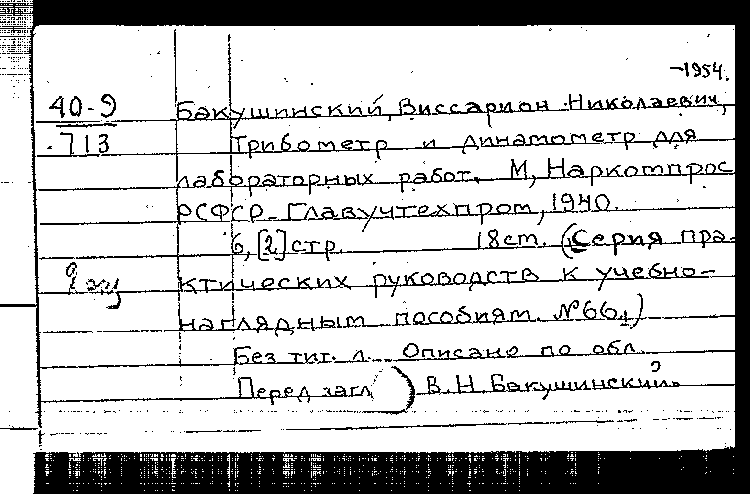 -1954.
40-9 Бакушинский, Виссарион Николаевич,
713 Трибометр и динамометр для
лабораторных работ. М, Наркомпрос
РСФСР-Главучтехпром, 1940.
6, [2] стр. 18 cm. (Серия пра-
2 экз ктических руководств к учебно-
наглядным пособиям. №661)
Без тит. л. Описано по обл.
Перед загл.) В. Н. Бакушинский.